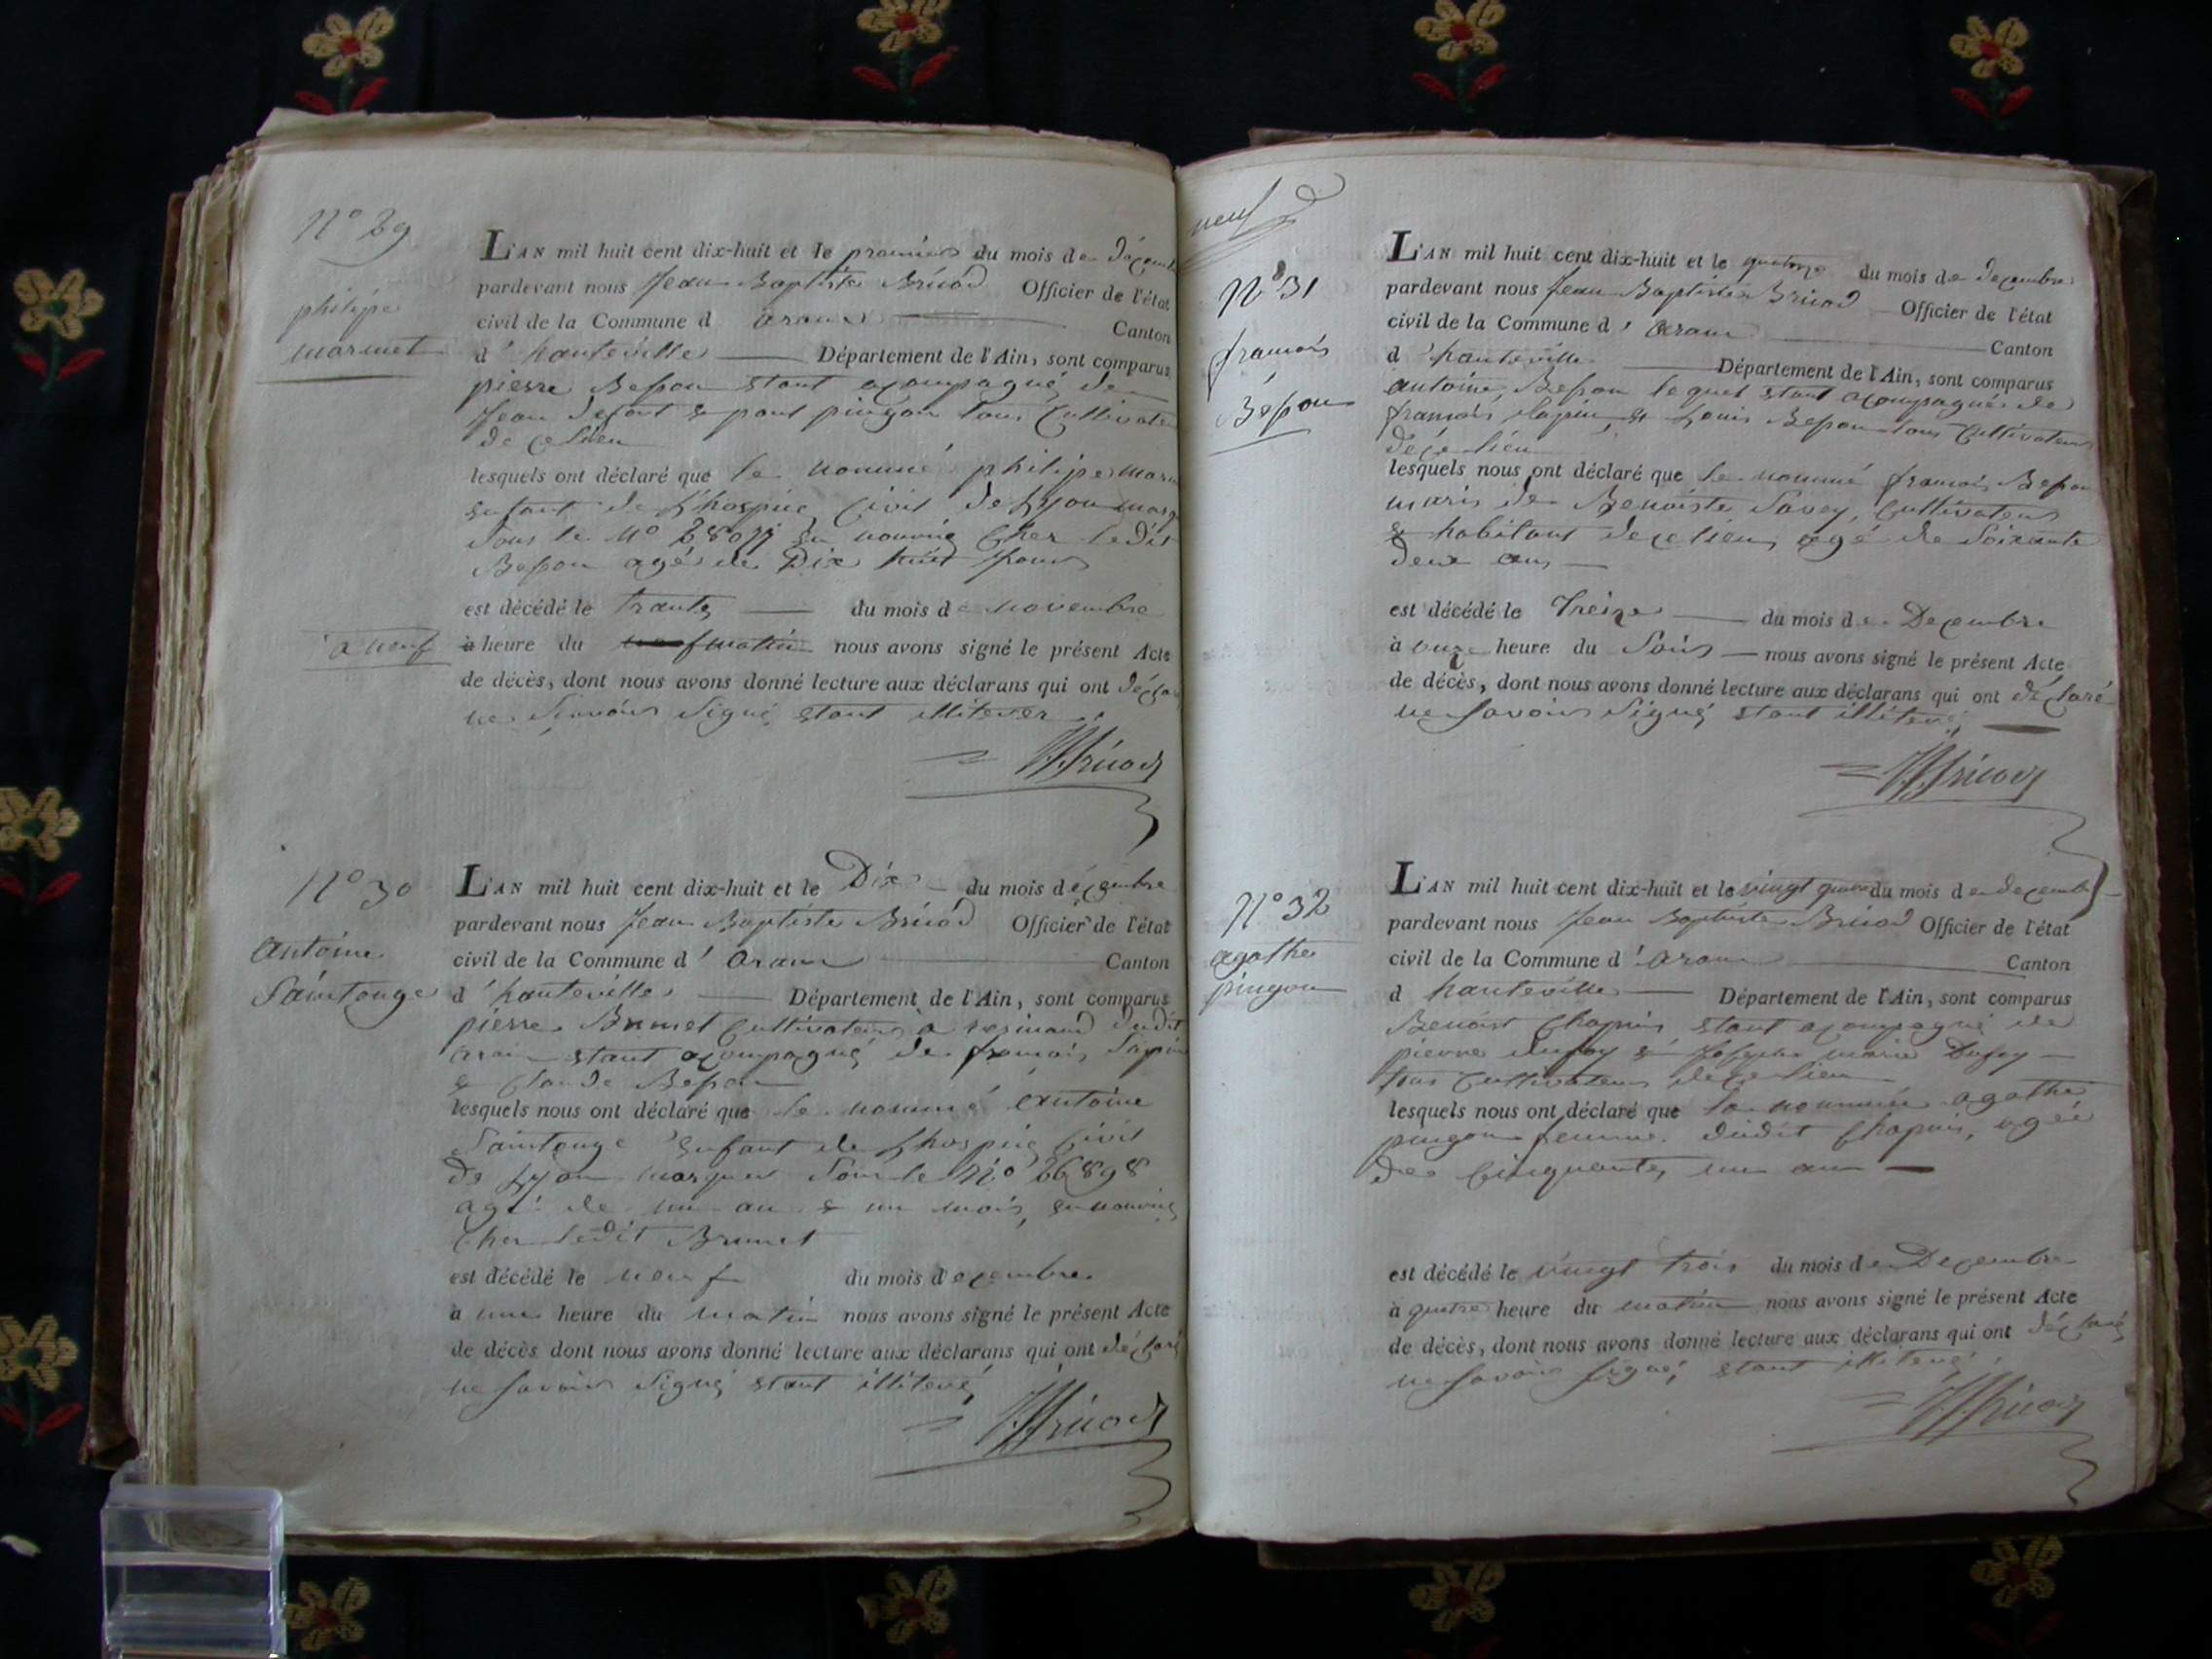 N° 29
philipe
marmet
L'AN mil huit cent dix-huit et le premier du mois de décemb
pardevant nous Jean Baptiste Bruod Officier de l'état
civil de la Commune d aranc Canton
d'hauteville Département de l'Ain, sont comparus
pierre Besson etant acompagné de
Jean & paul pingon tous Cultivate
de ce lieu
lesquels ont déclaré que le nommé philipe Marm
enfant de L'hospice Civil de Lyon marq
Sous le N° en nourrice Cher ledit
Besson agé de Dix huit Jours
est décédé le trante du mois de Novembre
a neuf
à heure du matin nous avons signé le présent Acte
de décès, dont nous avons donné lecture aux déclarans qui ont déclar
ne Signé etant illiterer
N° 30
antoine
Saintonge
L'AN mil huit cent dix-huit et le Dix du mois décembre
pardevant nous Jean Baptiste Bruod Officier de l'état
civil de la Commune d'aranc Canton
d'hauteville Département de l'Ain, sont comparus
pierre Brunet Cultivateur a resinand dudit
aranc etant acompagné de francois Sapin
& Claude Besson
lesquels nous ont déclaré que le nommé antoine
Saintonge enfant de Lhospice Civil
de Lyon marquer Sous le N° 26898
agé de un an & un mois, en nourrice
Cher ledit Brunet
est décédé le neuf du mois decembre
à une heure du matin nous avons signé le présent Acte
de décès dont nous avons donné lecture aux déclarans qui ont déclaré
ne Savoir Signé etant illiteré
neuf
N° 31
francois
Besson
L'AN mil huit cent dix-huit et le quatorze du mois de decembre
pardevant nous Jean Baptiste Bruod Officier de l'état
civil de la Commune d'aranc Canton
d'hauteville Département de l'Ain, sont comparus
antoine Besson lequel etant acompagné de
francois & Louis Besson tous Cultivateurs
de ce lieu
lesquels nous ont déclaré que le nommé francois Besson
maris de Benoiste Savey, Cultivateur
& habitant de ce lieu, agé de Soixante
deux ans
est décédé le Treize du mois de Decembre
à onze heure du Soir nous avons signé le présent Acte
de décès, dont nous avons donné lecture aux déclarans qui ont déclaré
ne Savoir Signé etant illiteré
N° 32
agathe
pingon
L'AN mil huit cent dix-huit et le vingt quatre du mois de decembre
pardevant nous Jean Baptiste Bruod Officier de l'état
civil de la Commune d'aranc Canton
d hauteville Département de l'Ain, sont comparus
Benoist Chapuis etant acompagné de
pierre dufey & Joseph marie Dufey
tous Cultivateurs de ce lieu
lesquels nous ont déclaré que la nommée agathe
pingon femme dudit Chapuis, agée
de Cinquante un an
est décédé le vingt trois du mois de Decembre
à quatre heure du matin nous avons signé le présent Acte
de décès, dont nous avons donné lecture aux déclarans qui ont déclaré
ne Savoir Signé, etant illiteré